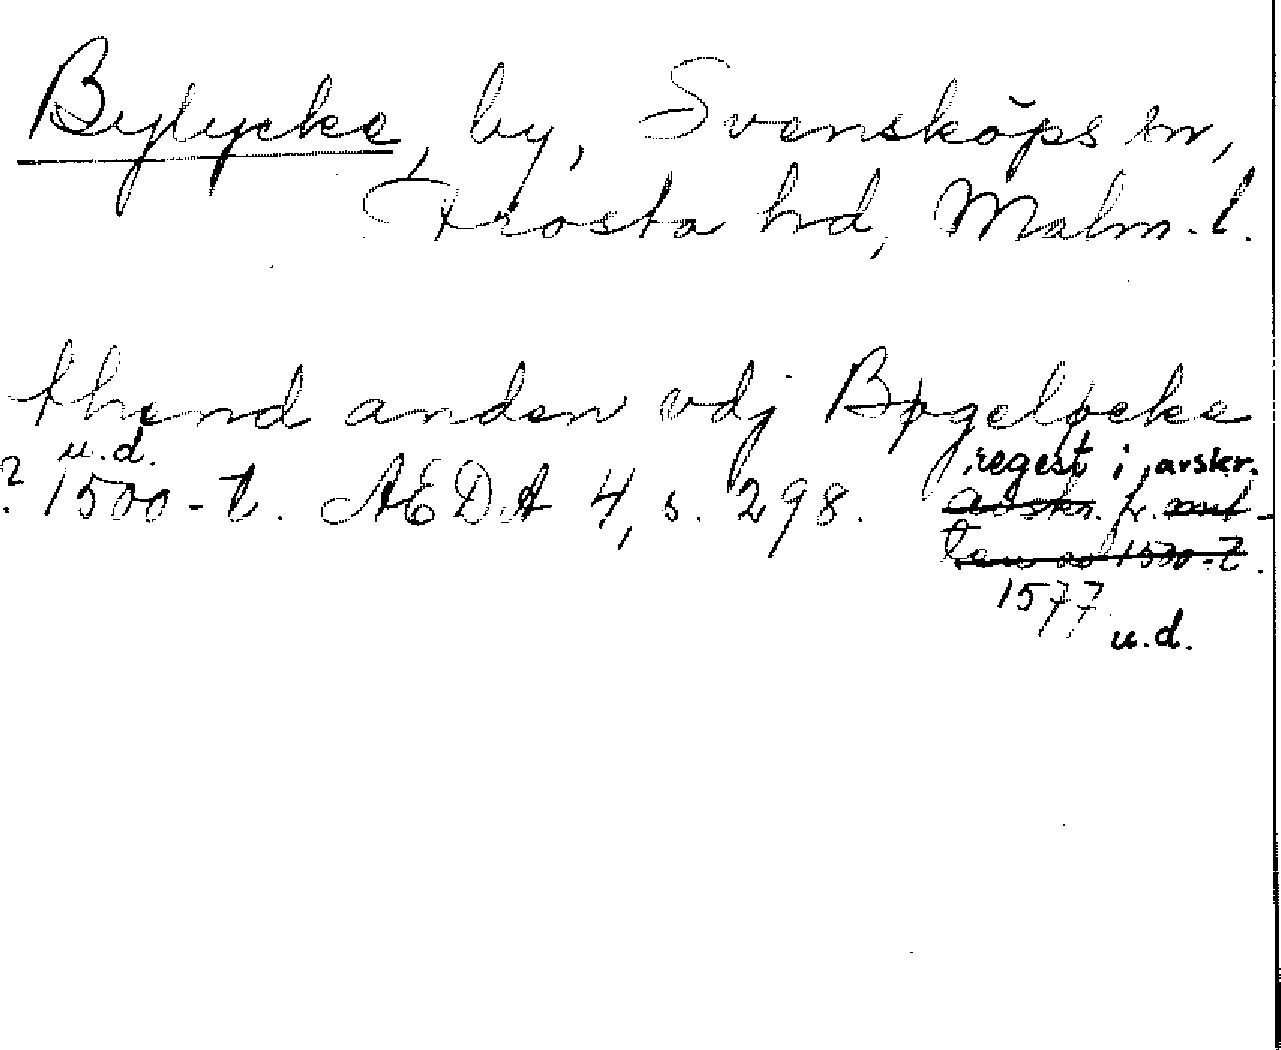 Bylycke, by, Svensköps sn,
Frosta hd, Malm. l.
thend anden vdj Bøgeløcke
u.d.
? 1500-t. AEDA 4, s. 298. regest i avskr.
avskr. fr. mit-
ten av 1500-t.
1577
u.d.